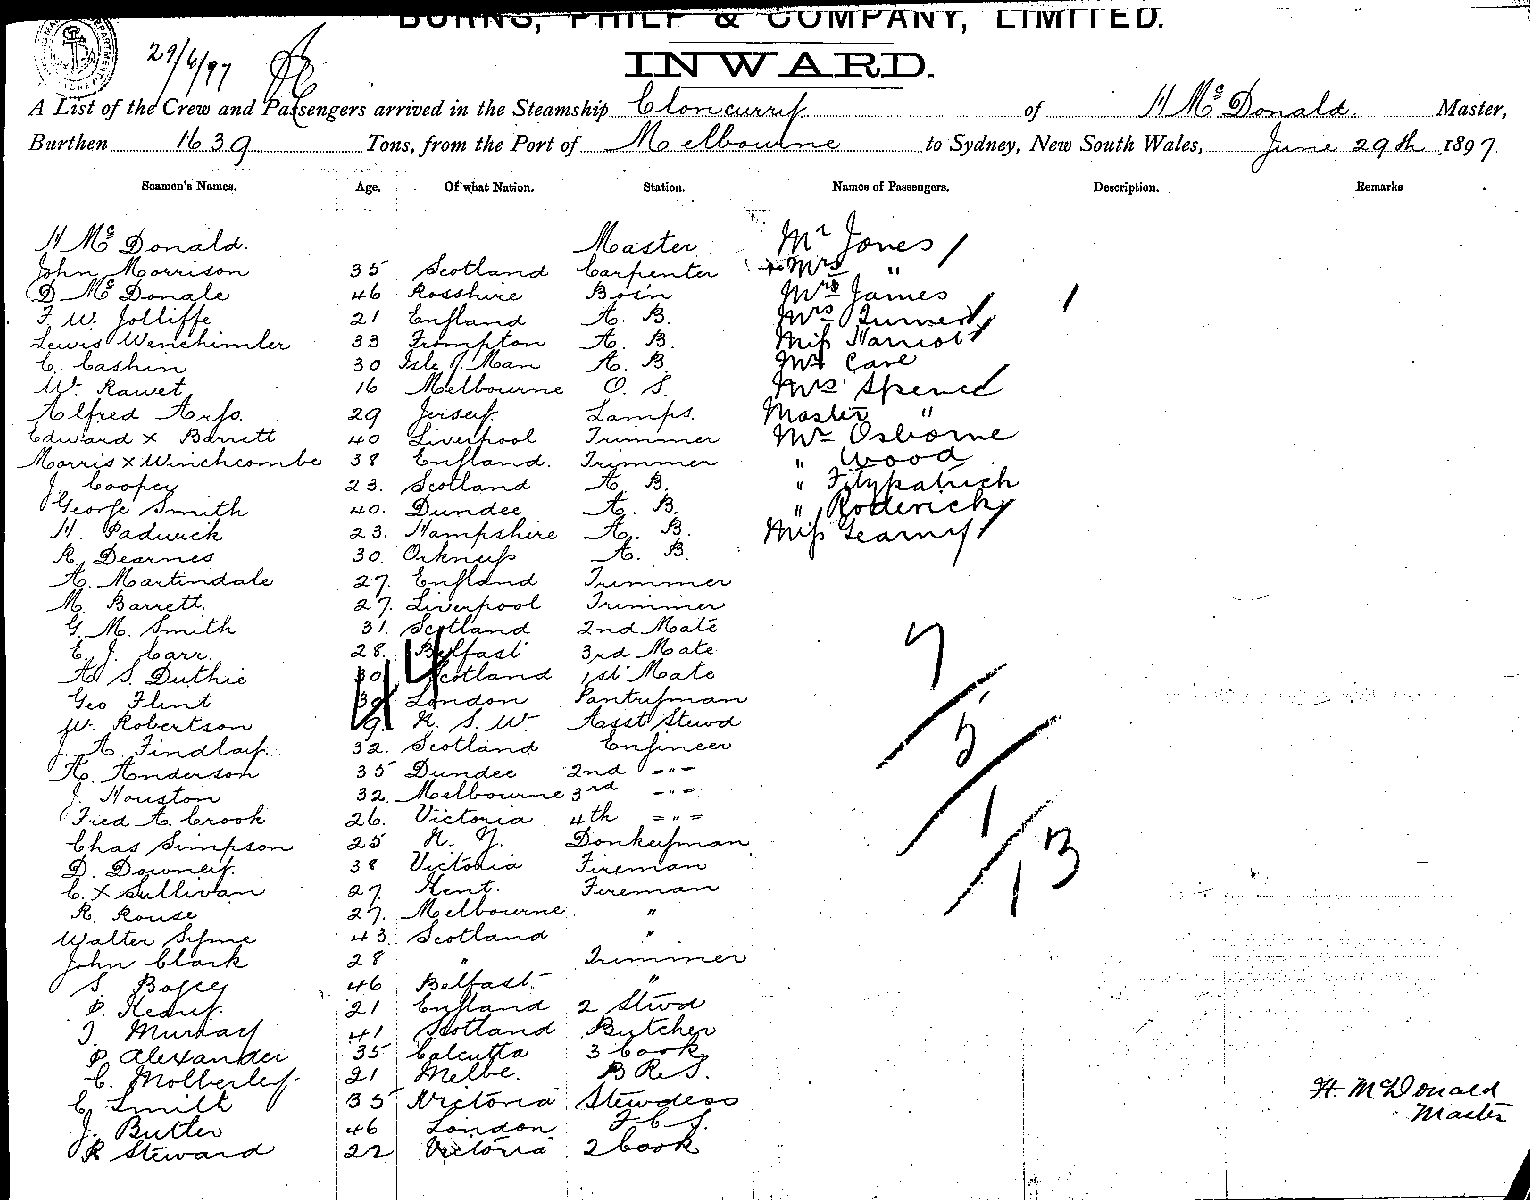 BURNS, PHILP & COMPANY, LIMITED.
INWARD.
29/6/97
A List of the Crew and Passengers arrived in the Steamship Cloncurry of H McDonald. Master,
Burthen 1639 Tons, from the Port of Melbourne to Sydney, New South Wales, June 29th 1897
Seamen's Names. Age. Of what Nation. Station. Names of Passengers. Description. Remarks
H McDonald. Master Mr Jones /
John Morrison 35 Scotland Carpenter Mrs "
D McDonale 46 Rosshire Bosn Mrs James / /
F. W. Jolliffe 21 England A. B. Mrs Turner /
Lewis Wenchimler 33 Frompton A. B. Miss Harriott /
C. Cashin 30 Isle of Man A. B. Mr Cane
W. Rawet 16 Melbourne O. S. Mrs Spence /
Alfred 29 Jersey Lamps. Master "
Edward x Barrett 40 Liverpool Trimmer Mr Osborne
Morris x Winchcombe 38 England. Trimmer " Wood
J. Cooper 23. Scotland A. B. " Fitzpatrick
George Smith 40. Dundee A. B. " Roderick /
H. Padwick 23. Hampshire A. B. Miss Gearny /
R. Dearnes 30. Orkneys A. B.
A. Martindale 27. England Trimmer
M. Barrett. 27. Liverpool Trimmer
G. M. Smith 31. Scotland 2nd Mate
E. J. Carr. 28. Belfast 3rd Mate
A. S. Duthie 30 Scotland 1st Mate
Geo Flint London Pantryman
W. Robertson N. S. W. Asst Stewd
J. A. Findlay. 32. Scotland Engineer
A. Anderson 35 Dundee 2nd - " -
J. Houston 32. Melbourne 3rd - " -
Fred A. Crook 26. Victoria 4th = " =
Chas Simpson 25 N. Z. Donkeyman
D. Downey. 38 Victoria Fireman
C. x Sullivan 27. Kent. Fireman
R. Rouse 27. Melbourne "
Walter Syme 43. Scotland "
John Clark 28 " Trimmer
S Bosley 46 Belfast. "
P. Kealy. 21 England 2 Stwd
J. Murray 41 Scotland Butcher
P. Alexander 35 Calcutta 3 Cook
C. Molberley 21 Melbe. B R S.
C Smith 35 Victoria Stewdess
J. Butler 46 London F C S.
R Steward 22 Victoria 2 Cook
44
7
5
1
13
H. McDonald
Master